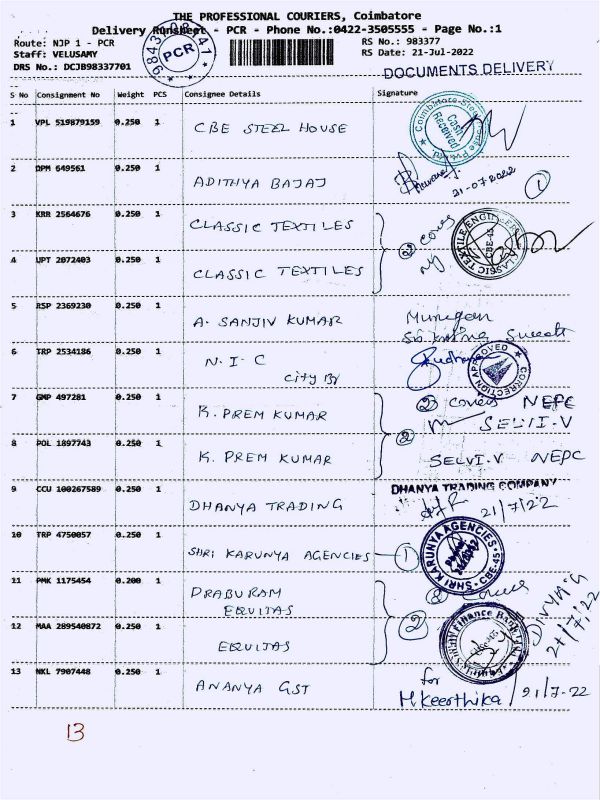 THE PROFESSIONAL COURIERS, Coimbatore
Delivery Runsheet - PCR - Phone No.:0422-3505555 - Page No.:1
Route: NJP 1 - PCR
RS No.: 983377
Staff: VELUSAMY
RS Date: 21-Jul-2022
DRS No.: DCJB98337701
PCR
DOCUMENTS DELIVERY
S No Consignment No Weight PCS Consignee Details Signature
1 VPL 519879159 0.250 1 CBE STEEL HOUSE
Cash Received
2 DPM 649561 0.250 1 ADITHYA BAJAJ
21-07-2022 1
3 KRR 2564676 0.250 1 CLASSIC TEXTILES
2
CLASSIC TEXTILE ENGINEERS CBE-45
4 UPT 2072403 0.250 1 CLASSIC TEXTILES
5 RSP 2369230 0.250 1 A. SANJIV KUMAR
Murugan
6 TRP 2534186 0.250 1 N. I. C
CORRECTION APPROVED
7 GMP 497281 0.250 1 K. PREM KUMAR
2 covers NEPC
SELVI-V
2
8 POL 1897743 0.250 1 K. PREM KUMAR
SELVI-V NEPC
9 CCU 100267589 0.250 1 DHANYA TRADING
DHANYA TRADING COMPANY
21/7/22
10 TRP 4750057 0.250 1 SHRI KARUNYA AGENCIES 1
SHRI KARUNYA AGENCIES CBE-45
11 PMK 1175454 0.200 1 PRABURAM
EQUITAS
2
12 MAA 289540872 0.250 1 EQUITAS
Finance Bank
13 NKL 7907448 0.250 1 ANANYA GST
for
M.Keerthika 21/7-22
13